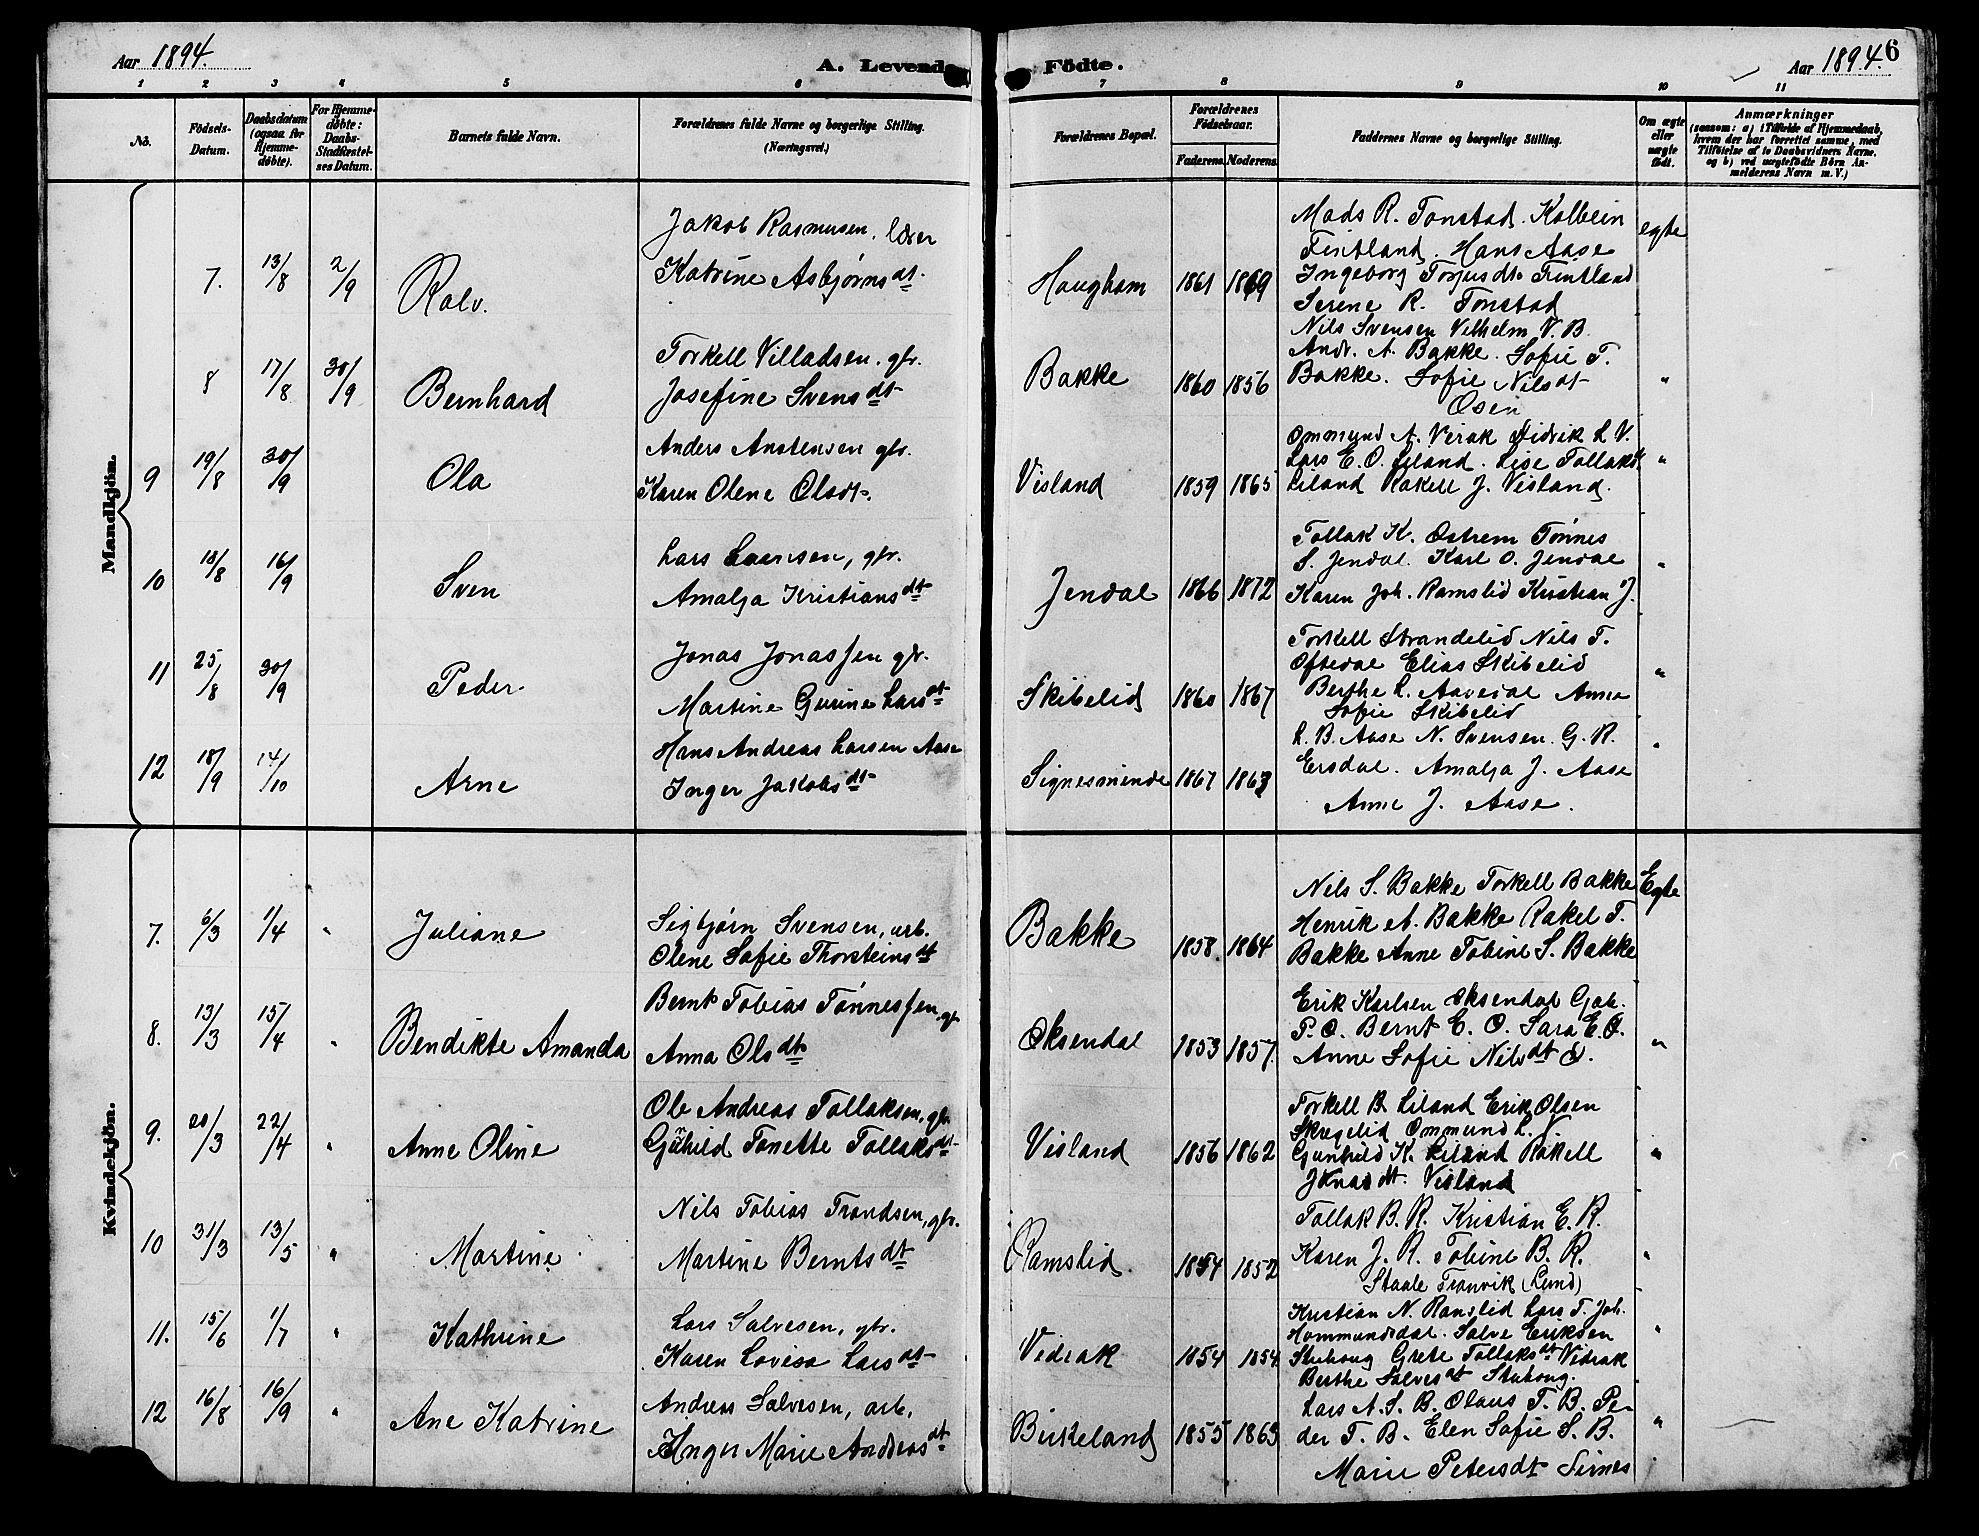 Aar 1894.
A. Levende Födte.
Aar 1894. 6
1 2 3 4 5 6 7 8 9 10 11
No.
Födsels-Datum.
Daabsdatum (ogsaa for Hjemmedöbte).
For Hjemmedöbte: Daabs-Stadfæstelses Datum.
Barnets fulde Navn.
Forældrenes fulde Navne og borgerlige Stilling. (Næringsvei.)
Forældrenes Bopæl.
Forældrenes Födselsaar.
Faderens. Moderens.
Faddernes Navne og borgerlige Stilling.
Om ægte eller uægte födt.
Anmærkninger
(saasom: a) i Tilfælde af Hjemmedaab, hvem der har forrettet samme, med Tilföielse af to Daabsvidners Navne. og b) ved uægtefödte Börn Anmelderens Navn m. V.)
Mandkjön.
7. 13/8 2/9 Ralv.
Jakob Rasmusen, lærer
Katrine Asbjørnsdt.
Haugham 1861 1869
Mads R. Tonstad. Kolbein
Fintland. Hans Aase
Ingeborg Torjusdt. Fintland
Serene R. Tonstad
egte
8 17/8 30/9 Bernhard
Torkell Villadsen. gbr.
Josefine Svensdt
Bakke 1860 1856
Nils Svensen Vilhelm V. B.
Andr. A. Bakke. Sofie T.
Bakke. Sofie Nilsdt
Osen
"
9 19/8 30/9 Ola
Anders Anstensen gbr.
Karen Olene Olsdt.
Visland 1859 1865
Ommund A. Virak Hidrik L V.
Lars E. O. Liland. Lise Tollaksdt
Liland Rakell J. Visland.
"
10 18/8 16/9 Sven
Lars Larsen, gbr.
Amalja Kristiansdt
Jendal 1866 1872
Tollak K. Østrem Tønnes
S. Jendal. Karl O. Jendal
Karen Joh. Ramslid Kristian J.
"
11 25/8 30/9 Peder.
Jonas Jonassen gbr.
Martine Gurine Larsdt
Skibelid 1860 1867
Torkell Strandelid Nils T.
Oftedal Elias Skibelid
Berthe L. Aavedal Anna
Sofie Skibelid
"
12 18/9 14/10 Arne
Hans Andreas Larsen Aase
Inger Jakobsdt
Signesminde 1867 1863
L. B. Aase N. Svensen. G. R.
Ersdal. Amalja J. Aase
Anne J. Aase.
"
Kvindekjön.
7. 6/3 1/4 " Juliane
Sigbjørn Svensen, arb.
Olene Sofie Thorsteinsdt
Bakke 1858. 1864
Nils S. Bakke Torkell Bakke
Henrik A. Bakke Rakel T.
Bakke Anne Tobine S. Bakke
Egte
8. 13/3 15/4 " Bendikte Amanda
Bernt Tobias Tønnessen, gbr
Anna Olsdt
Øksendal 1853 1857
Erik Karlsen Øksendal Gab.
P. Ø. Bernt E. Ø. Sara E. Ø.
Anne Sofie Nilsdt Ø.
"
9. 20/3 22/4 " Anne Oline
Ole Andreas Tollaksen, gbr
Gunhild Tonette Tollaksdt
Visland 1856 1862
Torkell B. Liland Erik Olsen
Skregelid Ommund L. V.
Gunhild K. Liland Rakell
Jonasdt. Visland
"
10 31/3 13/5 " Martine
Nils Tobias Trondsen, gbr.
Martine Berntsdt
Ramslid. 1854 1852
Tollak B. R. Kristian E. R.
Karen J. R. Tobine B. R.
Staale Tranvik (Lund)
"
11. 15/6 1/7 " Kathrine
Lars Salvesen, gbr.
Karen Lovisa Larsdt
Vidrak 1854 1854
Kristian N. Ramslid Lars T. Joh.
Hommundsdal. Salve Eriksen
Stuhoug Grete Tollaksdt Vidrak
Berthe Salvesdt Stuhoug.
"
12 16/8 16/9 " Ane Katrine
Andreas Salvesen, arb.
Inger Marie Andreasdt
Birkeland 1855 1863
Lars A. S. B. Olaus T. B. Pe-
der T. B. Elen Sofie S. B.
Marie Petersdt Sirnes
"